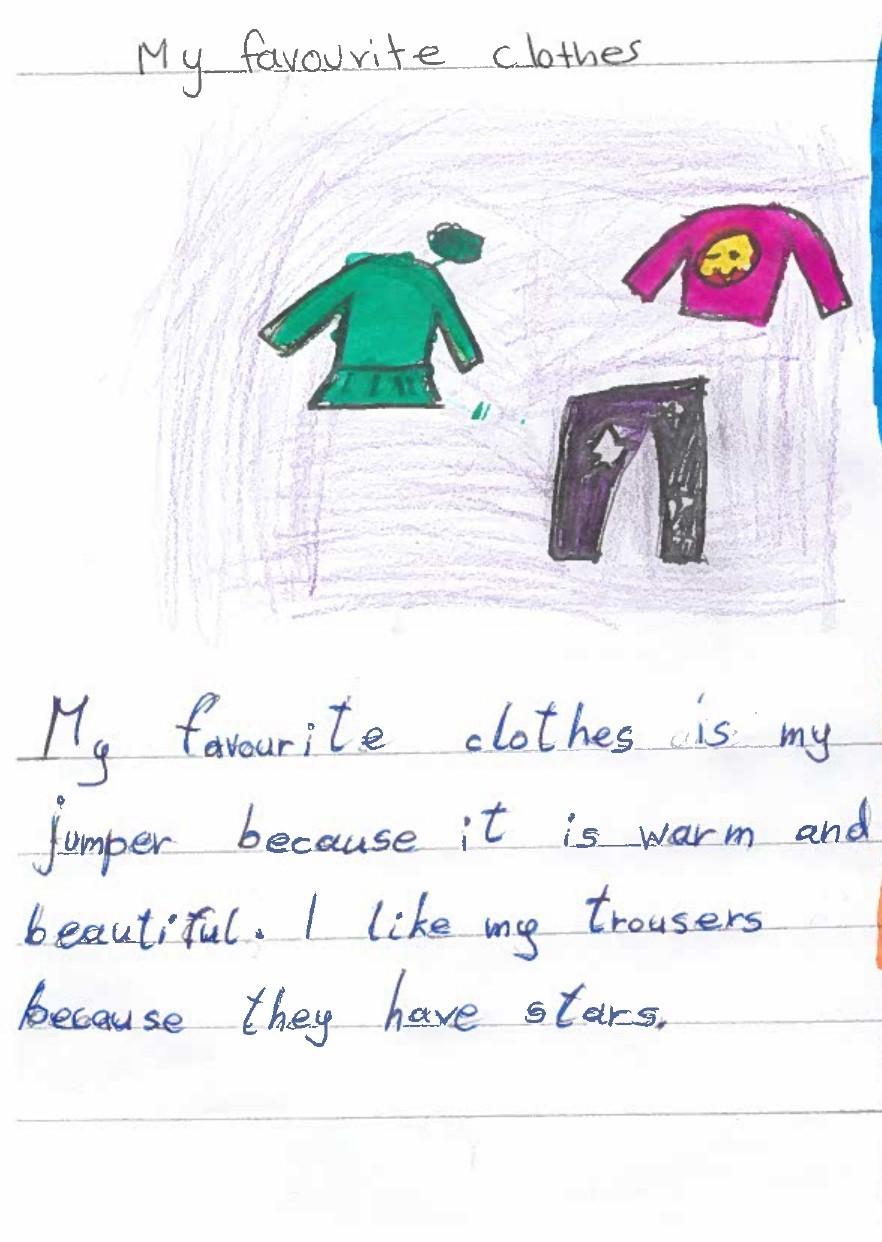 My favourite clothes
My favourite clothes is my
jumper because it is warm and
beautiful. I like my trousers
because they have stars.